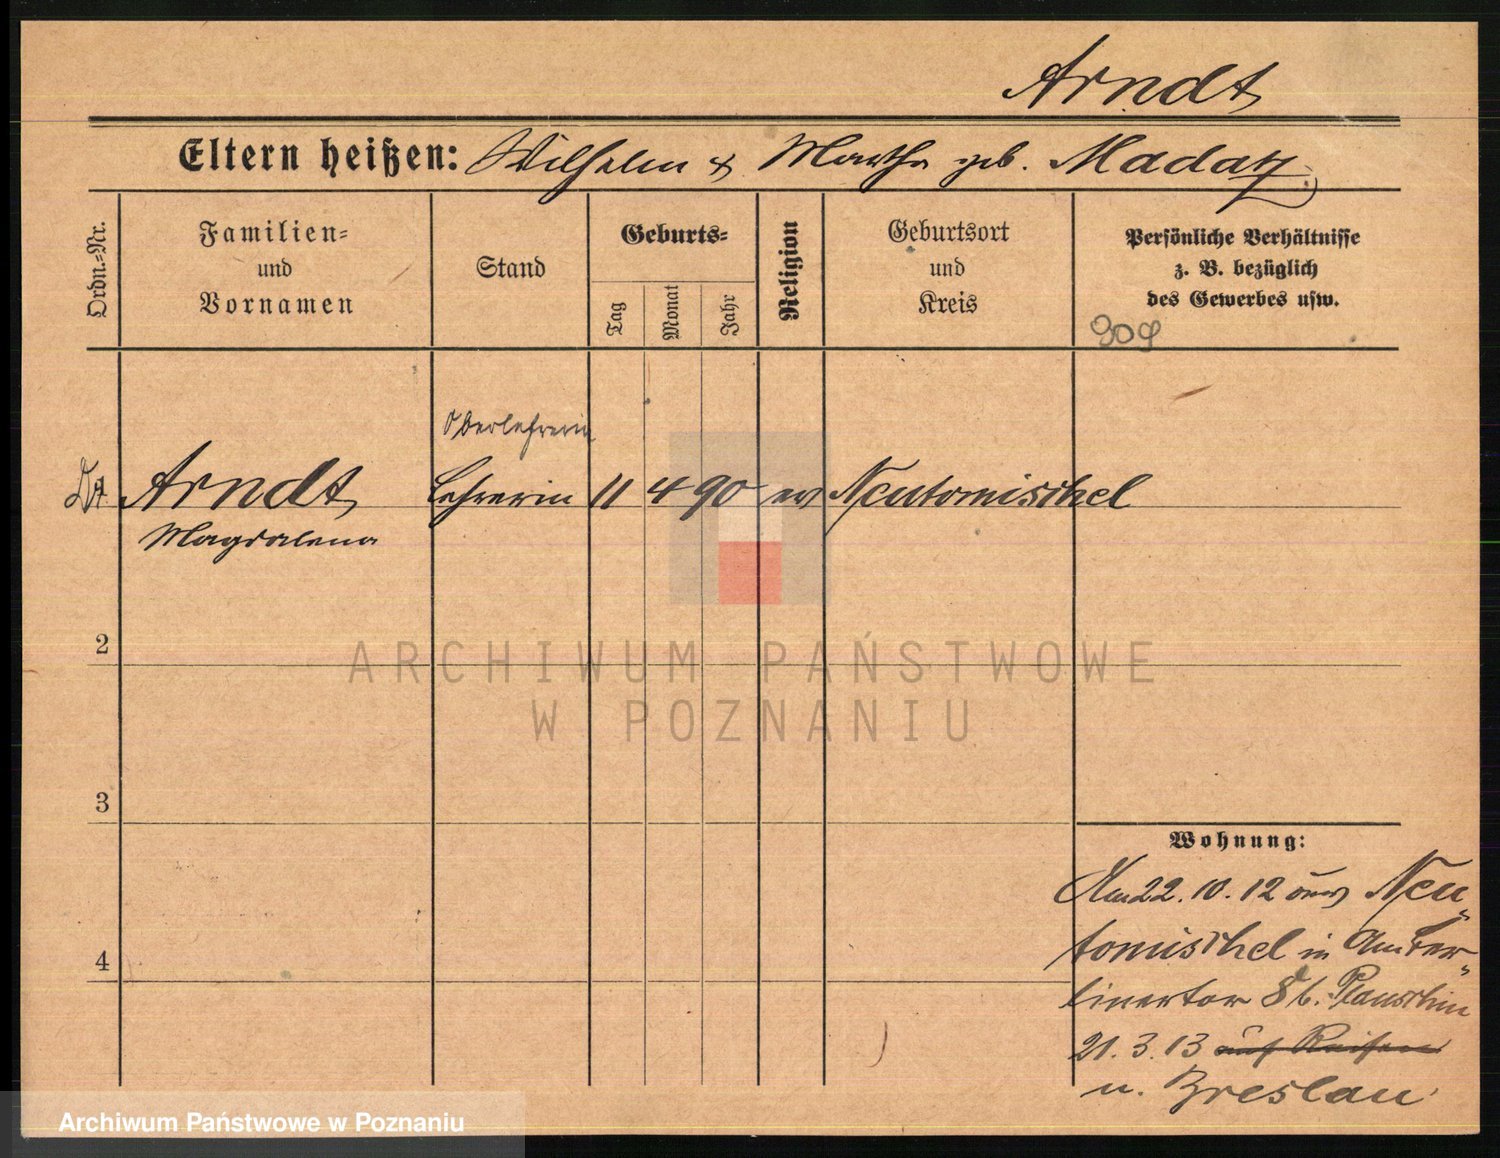 Arndt
Eltern heißen: Wilhelm & Martha geb. Madatz
Ordn.-Nr.
Familien-
und
Vornamen
Stand
Geburts-
Tag
Monat
Jahr
Religion
Geburtsort
und
Kreis
Persönliche Verhältnisse
z. B. bezüglich
des Gewerbes usw.
309
Oberlehrerin
Arndt Lehrerin 11 4 90 ev Neutomischel
Magdalena
2
3
4
Wohnung:
Am 22. 10. 12 aus Neu
tomischel in Am Ber
linertor 8 b. Plauschin
21. 3. 13 auf Reisen
n. Breslau
ARCHIWUM PAŃSTWOWE
W POZNANIU
Archiwum Państwowe w Poznaniu